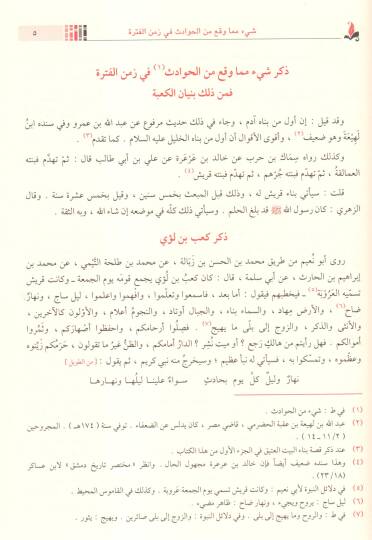 شيء مما وقع من الحوادث في زمن الفترة
٥
ذكر شيء مما وقع من الحوادث (١) في زمن الفترة
فمن ذلك بنيان الكعبة
وقد قيل : إن أول من بناه آدم ، وجاء في ذلك حديث مرفوع عن عبد الله بن عمرو وفي سنده ابنُ
لَهِيْعَةَ وهو ضعيف(٢) ، وأقوى الأقوال أن أول من بناه الخليل عليه السلام . كما تقدم(٣) .
وكذلك رواه سِمَاك بن حرب عن خالد بن عَرْعَرة عن علي بن أبي طالب قال : ثمّ تهدّم فبنته
العمالقةُ ، ثمّ تهدّم فبنته جُرْهم ، ثم تهدّم فبنته قريش(٤) .
قلت : سيأتي بناء قريش له ، وذلك قبل المبعث بخمس سنين ، وقيل بخمس عشرة سنة . وقال
الزهري : كان رسول الله ﷺ قد بلغ الحلم . وسيأتي ذلك كلّه في موضعه إن شاء الله ، وبه الثقة .
ذكر كعب بن لؤي
روى أبو نُعيم من طريق محمد بن الحسن بن زَبَالة ، عن محمد بن طلحة التَّيْمي ، عن محمد بن
إبراهيم بن الحارث ، عن أبي سلمة ، قال : كان كعبُ بن لُؤي يجمع قومَه يوم الجمعة ـ وكانت قريش
تسمّيه العَرُوْبَة(٥) ـ فيخطبهم فيقول : أما بعد ، فاسمعوا وتعلّموا ، وافهموا واعلموا ، ليل ساج ، ونهارٌ
ضاح(٦) ، والأرض مِهاد ، والسماء بناء ، والجبال أوتاد ، والنجومُ أعلام ، والأوّلون كالآخرين ،
والأنثى والذكر ، والزوج إلى بلًى ما يهيج(٧) . فصِلُوا أرحامكم ، واحفظوا أصهاركم ، وثمُّروا
أموالكم . فهل رأيتم من هالكٍ رَجع ؟ أو ميت نُشِر ؟ الدارُ أمامكم ، والظنُّ غيرُ ما تقولون ، حَرَمُكم زيِّنوه
وعظِّموه ، وتمسّكوا به ، فسيأتي له نبأ عظيم ؛ وسيخرجُ منه نبي كريم ، ثم يقول : [ من الطويل ]
نهارٌ وليلٌ كلَّ يوم بحادثٍ سـواءٌ علينـا ليلُهـا ونهـارهـا
(١) في ط : شيء من الحوادث .
(٢) عبد الله بن لهيعة بن عقبة الحضرمي ، قاضي مصر ، كان يدلس عن الضعفاء . توفي سنة ( ١٧٤هـ ) . المجروحين
( ٢/ ١١-١٤ ) .
(٣) عند ذكر قصة بناء البيت العتيق في الجزء الأول من هذا الكتاب .
(٤) وهذا سنده ضعيف أيضاً فإن خالد بن عرعرة مجهول الحال . وانظر « مختصر تاريخ دمشق » لابن عساكر
( ١٨/ ٢٣ ) .
(٥) في دلائل النبوة لأبي نعيم : وكانت قريش تسمي يوم الجمعة عروبة . وكذلك في القاموس المحيط .
(٦) ليل ساج : يروح ويجيء ، ونهار ضاح : ظاهر مضيء .
(٧) في ط : والروح وما يهيج إلى بلى . وفي دلائل النبوة : والزوج إلى بلى صائرين . ويهيج : يثور .